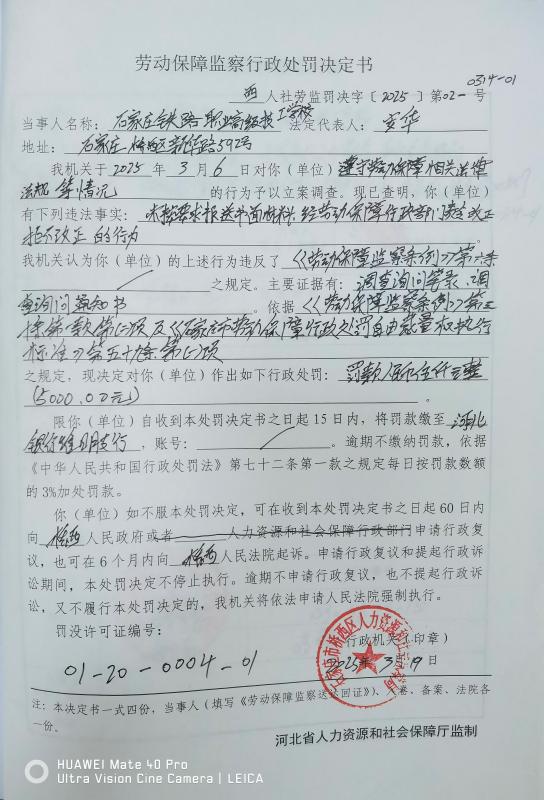 劳动保障监察行政处罚决定书
0314-01
西人社劳监罚决字〔2025〕第02-号
当事人名称:石家庄铁路职业高级技工学校 法定代表人:安华
地址:石家庄桥西区新华路592号
我机关于2025年3月6日对你(单位)遵守劳动保障相关法律
法规等情况的行为予以立案调查。现已查明,你(单位)
有下列违法事实:未按要求报送书面材料,经劳动保障行政部门责令改正
拒不改正的行为。
我机关认为你(单位)的上述行为违反了《劳动保障监察条例》第
之规定。主要证据有:调查询问笔录、调
查询问通知书。依据《劳动保障监察条例》第三
十条第一款第(二)项及《石家庄市劳动保障行政处罚自由裁量权执行
标准》第五十条第(二)项
之规定,现决定对你(单位)作出如下行政处罚:罚款人民币伍仟元整
(5000.00元)。
限你(单位)自收到本处罚决定书之日起15日内,将罚款缴至河北
银行维明支行,账号: 。逾期不缴纳罚款,依据
《中华人民共和国行政处罚法》第七十二条第一款之规定每日按罚款数额
的3%加处罚款。
你(单位)如不服本处罚决定,可在收到本处罚决定书之日起60日内
向桥西人民政府或者 人力资源和社会保障行政部门申请行政复
议,也可在6个月内向桥西人民法院起诉。申请行政复议和提起行政诉
讼期间,本处罚决定不停止执行。逾期不申请行政复议,也不提起行政诉
讼,又不履行本处罚决定的,我机关将依法申请人民法院强制执行。
罚没许可证编号:
行政机关(印章)
01-20-0004-01
2025年3月19日
石家庄市桥西区人力资源和社会保障局
注:本决定书一式四份,当事人(填写《劳动保障监察送达回证》)、存卷、备案、法院各
一份。
河北省人力资源和社会保障厅监制
HUAWEI Mate 40 Pro
Ultra Vision Cine Camera | LEICA